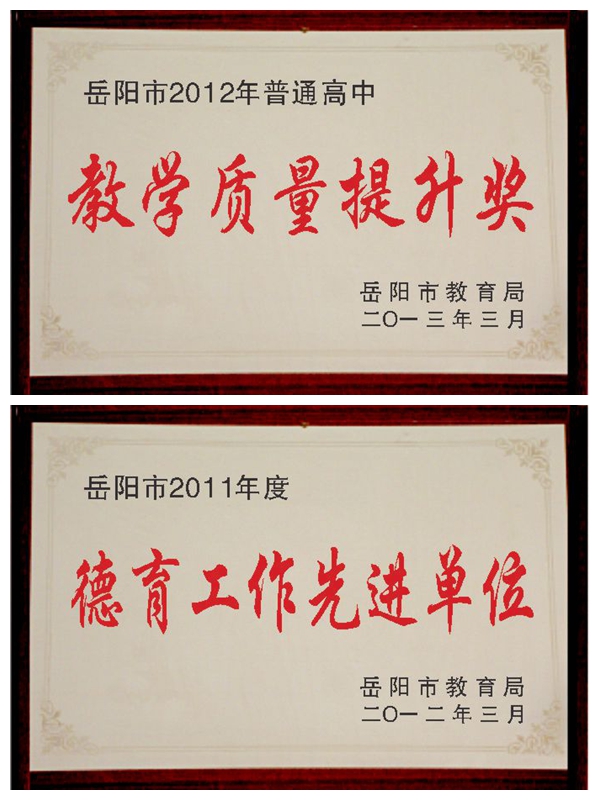 岳阳市2012年普通高中
教学质量提升奖
岳阳市教育局
二〇一三年三月
岳阳市2011年度
德育工作先进单位
岳阳市教育局
二〇一二年三月